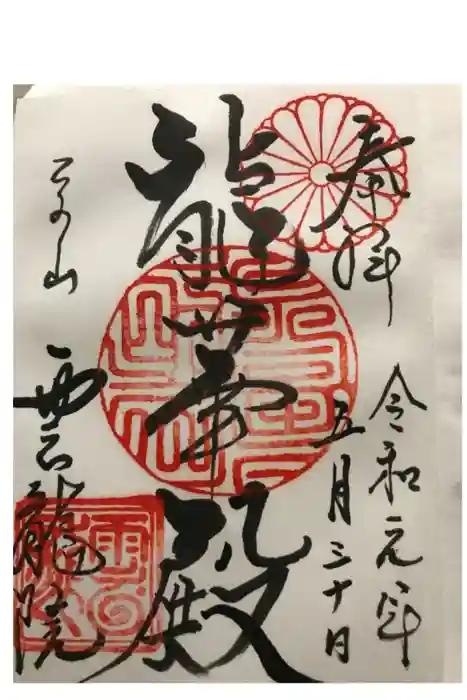 奉拝
令和元年
五月三十日
龍華殿
雲龍院